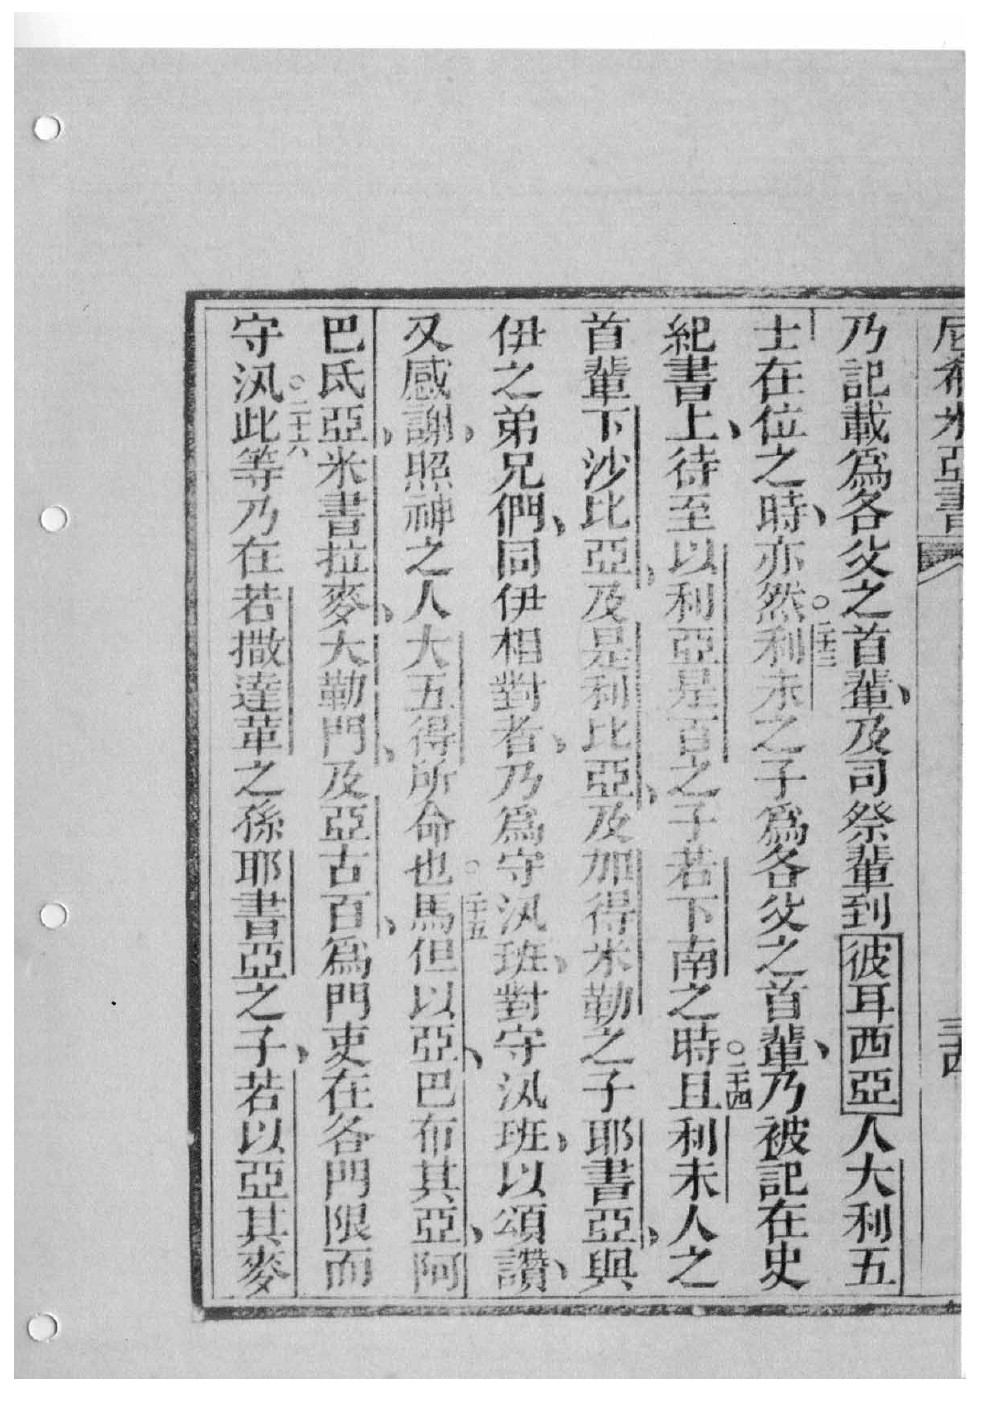 尼希米亞書 三十四
乃記載爲各父之首輩、及司祭輩到彼耳西亞人大利五
士在位之時、亦然○二十三利未之子爲各父之首輩、乃被記在史
紀書上、待至以利亞是百之子若下南之時○二十四且利未人之
首輩下沙比亞、及是利比亞、及加得米勒之子耶書亞、與
伊之弟兄們、同伊相對者、乃爲守汛班、對守汛班、以頌讚、
又感謝、照神之人大五得所命也○二十五馬但以亞、巴布其亞、阿
巴氐亞、米書拉麥、大勒門、及亞古百、爲門吏在各門限而
守汛○二十六此等乃在若撒達革之孫耶書亞之子、若以亞其麥